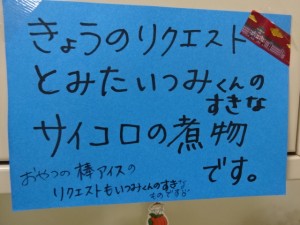 きょうのリクエスト
とみたいつみくんの
すきな
サイコロの煮物
です。
おやつの棒アイスの
リクエストもいつみくんのすきな
ものです